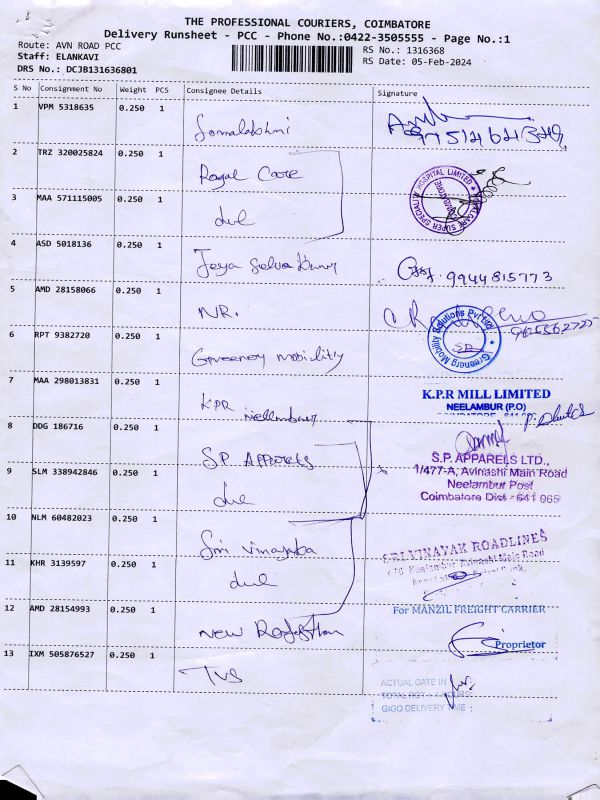 THE PROFESSIONAL COURIERS, COIMBATORE
Delivery Runsheet - PCC - Phone No.:0422-3505555 - Page No.:1
Route: AVN ROAD PCC
RS No.: 1316368
Staff: ELANKAVI
RS Date: 05-Feb-2024
DRS No.: DCJB131636801
S No Consignment No Weight PCS Consignee Details Signature
1 VPM 5318635 0.250 1
2 TRZ 320025824 0.250 1 Royal Care
3 MAA 571115005 0.250 1 dul
4 ASD 5018136 0.250 1 9944815773
5 AMD 28158066 0.250 1 NR.
6 RPT 9382720 0.250 1 Greenerg mobility
7 MAA 298013831 0.250 1 KPR Neelambur
K.P.R MILL LIMITED
NEELAMBUR (P.O)
8 DDG 186716 0.250 1 S.P Apparels
S.P. APPARELS LTD.,
1/477-A, Avinashi Main Road
Neelambur Post
Coimbatore Dist - 641 065
9 SLM 338942846 0.250 1 dul
10 NLM 60482023 0.250 1 Sri Vinayaka
SRI VINAYAK ROADLINES
11 KHR 3139597 0.250 1 dul
12 AMD 28154993 0.250 1 New Rajasthan
For MANZIL FREIGHT CARRIER
Proprietor
13 IXM 505876527 0.250 1 TVS
ACTUAL GATE IN
GIGO DELIVERY TIME :